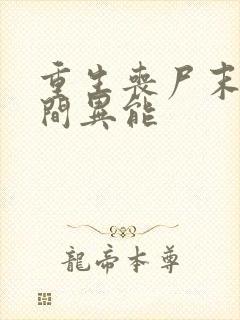 重生丧尸末
間異能
龍帝本尊